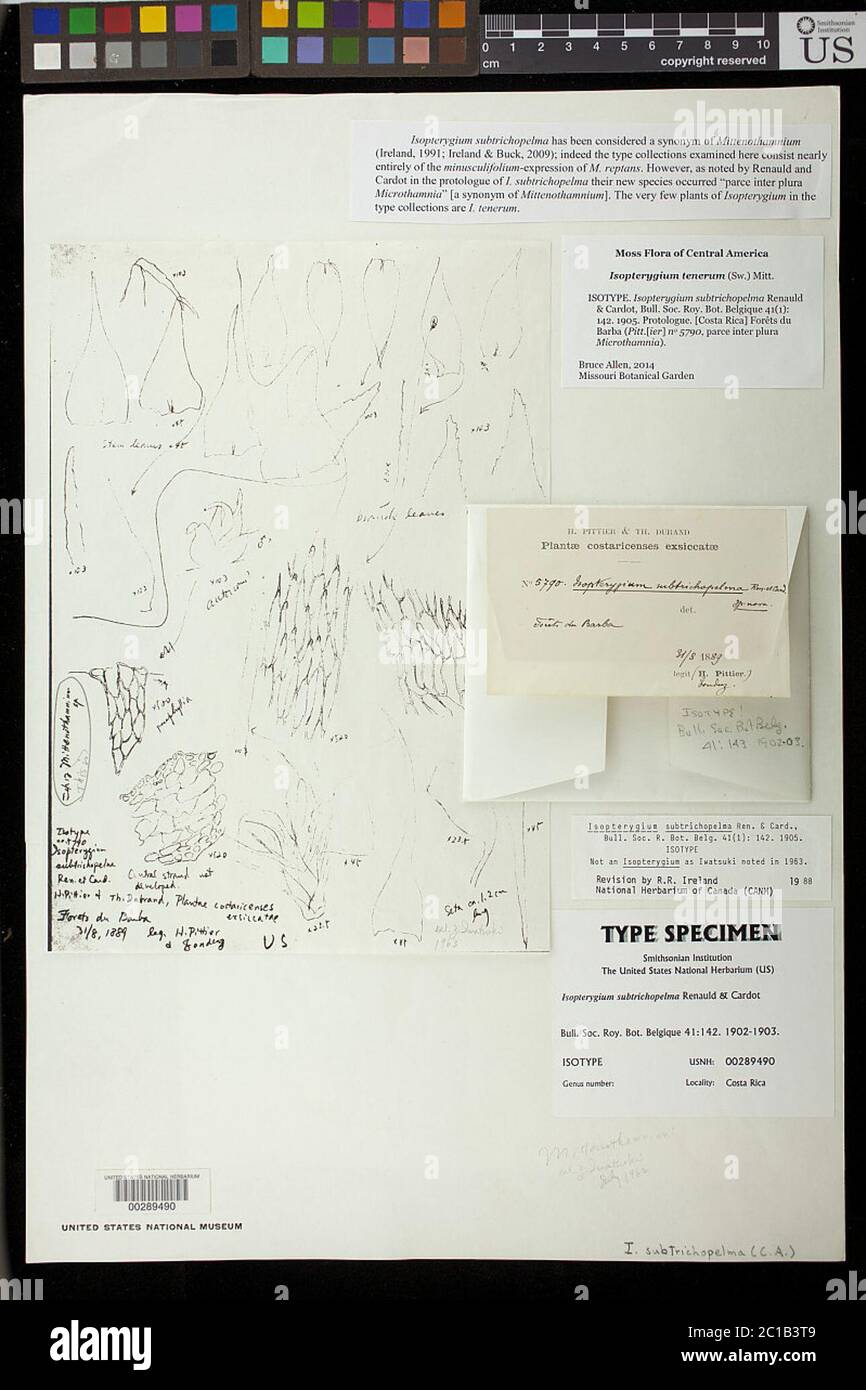 0 1 2 3 4 5 6 7 8 9 10
cm
copyright reserved
Smithsonian
Institution
US
Isopterygium subtrichopelma has been considered a synonym of Mittenothamnium
(Ireland, 1991; Ireland & Buck, 2009); indeed the type collections examined here consist nearly
entirely of the minusculifolium-expression of M. reptans. However, as noted by Renauld and
Cardot in the protologue of I. subtrichopelma their new species occurred “parce inter plura
Microthamnia” [a synonym of Mittenothamnium]. The very few plants of Isopterygium in the
type collections are I. tenerum.
Moss Flora of Central America
Isopterygium tenerum (Sw.) Mitt.
ISOTYPE. Isopterygium subtrichopelma Renauld
& Cardot, Bull. Soc. Roy. Bot. Belgique 41(1):
142. 1905. Protologue. [Costa Rica] Forêts du
Barba (Pitt.[ier] nº 5790, parce inter plura
Microthamnia).
Bruce Allen, 2014
Missouri Botanical Garden
Stem leaves x45
Branch leaves
H. PITTIER & TH. DURAND
Plantæ costaricenses exsiccatæ
Nº 5790. Isopterygium subtrichopelma Ren. et Card.
sp. nova.
det.
Forêts du Barba
31/8 1889
legit (H. Pittier.)
ISOTYPE!
Bull. Soc. Bot. Belg.
41: 143 1902-03.
x103
x103
x103
x103
x520
x520
Isotype
no. 5790
Isopterygium
subtrichopelma
Ren. et Card.
Central strand not
developed.
H. Pittier & Th. Durand, Plantae costaricenses
exsiccatae
Forets du Barba
31/8, 1889 leg. H. Pittier
& Tonduz
US
Seta ca. 1.2 cm
long
1963
Isopterygium subtrichopelma Ren. & Card.,
Bull. Soc. R. Bot. Belg. 41(1): 142. 1905.
ISOTYPE
Not an Isopterygium as Iwatsuki noted in 1963.
Revision by R.R. Ireland 1988
National Herbarium of Canada (CANM)
TYPE SPECIMEN
Smithsonian Institution
The United States National Herbarium (US)
Isopterygium subtrichopelma Renauld & Cardot
Bull. Soc. Roy. Bot. Belgique 41:142. 1902-1903.
ISOTYPE USNH: 00289490
Genus number: Locality: Costa Rica
UNITED STATES NATIONAL HERBARIUM
00289490
UNITED STATES NATIONAL MUSEUM
I. subtrichopelma (C.A.)
alamy
Image ID: 2C1B3T9
www.alamy.com